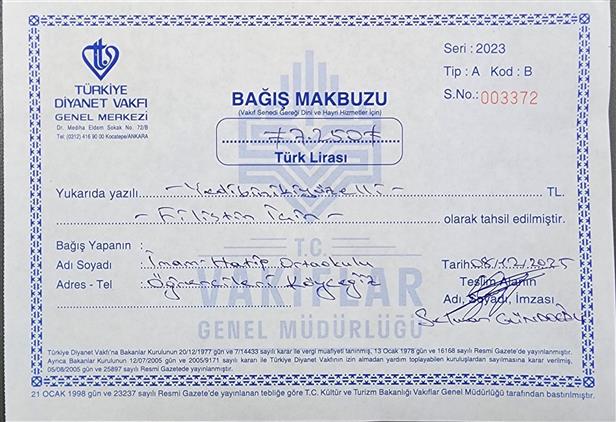 TÜRKİYE
DİYANET VAKFI
GENEL MERKEZİ
Dr. Mediha Eldem Sokak No. 72/B
Tel. (0312) 416 90 00 Kocatepe/ANKARA
Seri : 2023
Tip : A Kod : B
S.No.: 003372
BAĞIŞ MAKBUZU
(Vakıf Senedi Gereği Dini ve Hayri Hizmetler İçin)
Türk Lirası
Yukarıda yazılı - Yedibinikiyüzelli - TL.
- Filistin İçin - olarak tahsil edilmiştir.
Bağış Yapanın :
Adı Soyadı : İmam Hatip Ortaokulu
Adres - Tel : Öğrencileri Köyceğiz
Tarih: 08/12/2025
Teslim Alanın
Adı, Soyadı, İmzası
T.C.
VAKIFLAR
GENEL MÜDÜRLÜĞÜ
Türkiye Diyanet Vakfı'na Bakanlar Kurulunun 20/12/1977 gün ve 7/14433 sayılı karar ile vergi muafiyeti tanınmış, 13 Ocak 1978 gün ve 16168 sayılı Resmi Gazete'de yayınlanmıştır.
Ayrıca Bakanlar Kurulunun 12/07/2005 gün ve 2005/9171 sayılı kararı ile Türkiye Diyanet Vakfının izin almadan yardım toplayabilen kuruluşlardan sayılmasına karar verilmiş,
05/08/2005 gün ve 25897 sayılı Resmi Gazetede yayınlanmıştır.
21 OCAK 1998 gün ve 23237 sayılı Resmi Gazete'de yayınlanan tebliğe göre T.C. Kültür ve Turizm Bakanlığı Vakıflar Genel Müdürlüğü tarafından bastırılmıştır.